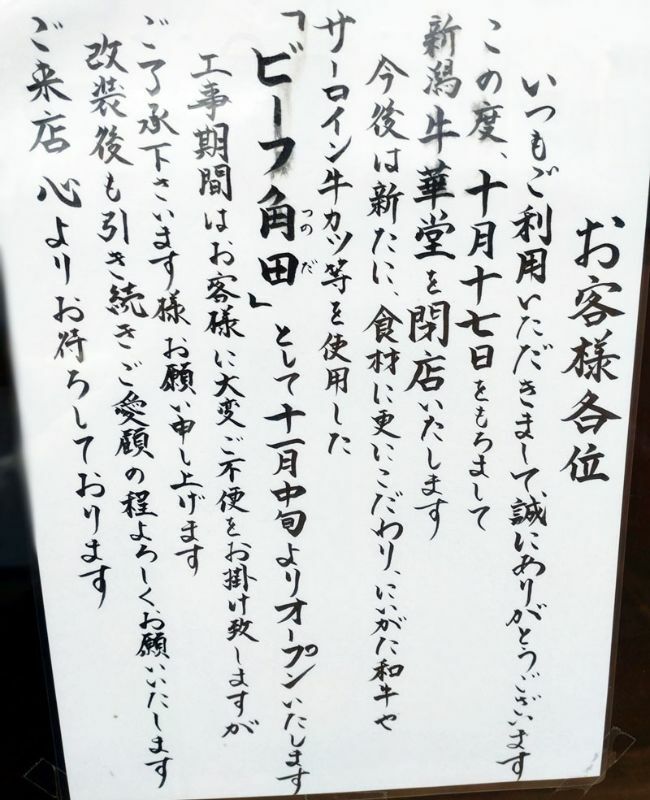 お客様各位
いつもご利用いただきまして、誠にありがとうございます
この度、十月十七日をもちまして
新潟牛華堂を閉店いたします
今後は新たに、食材に更にこだわり、にいがた和牛や
サーロイン牛カツ等を使用した
「ビーフ角田」として十一月中旬よりオープンいたします
つのだ
工事期間はお客様に大変ご不便をお掛け致しますが
ご了承下さいます様お願い申し上げます
改装後も引き続きご愛顧の程よろしくお願いいたします
ご来店心よりお待ちしております